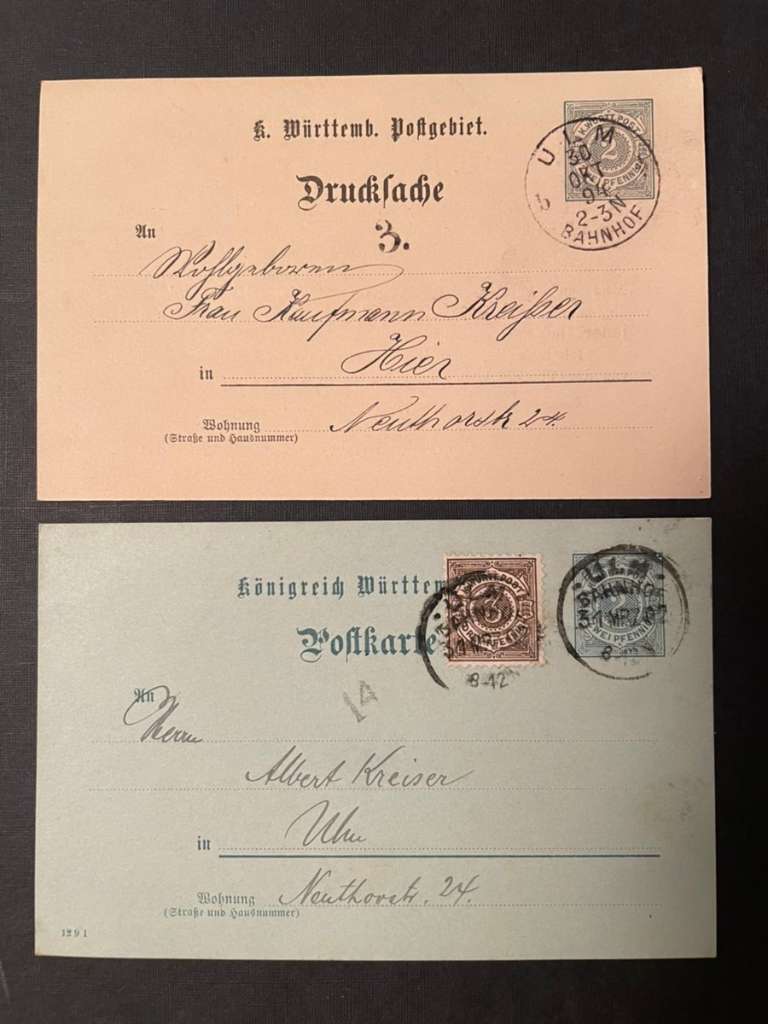 K. Württemb. Postgebiet.
Drucksache
3.
K. WÜRTT. POST
2
ZWEI PFENNIG
ULM
30
OKT
94
2-3N
BAHNHOF
b
An
Wohlgeboren
Frau Kaufmann Kreißer
in Hier
Wohnung Neuthorstr 24.
(Straße und Hausnummer)
Königreich Württem
Postkarte
3
PFENNIG
8-12
ULM
BAHNHOF
31 MRZ 02
8-
ZWEI PFENNIG
14
An
Herrn
Albert Kreiser
in Ulm
Wohnung Neuthorstr. 24.
(Straße und Hausnummer)
12 9 1